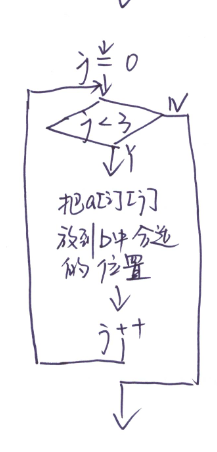 j = 0
j < 3
N
Y
把a[i][j]
放到b中合适
的位置
j++